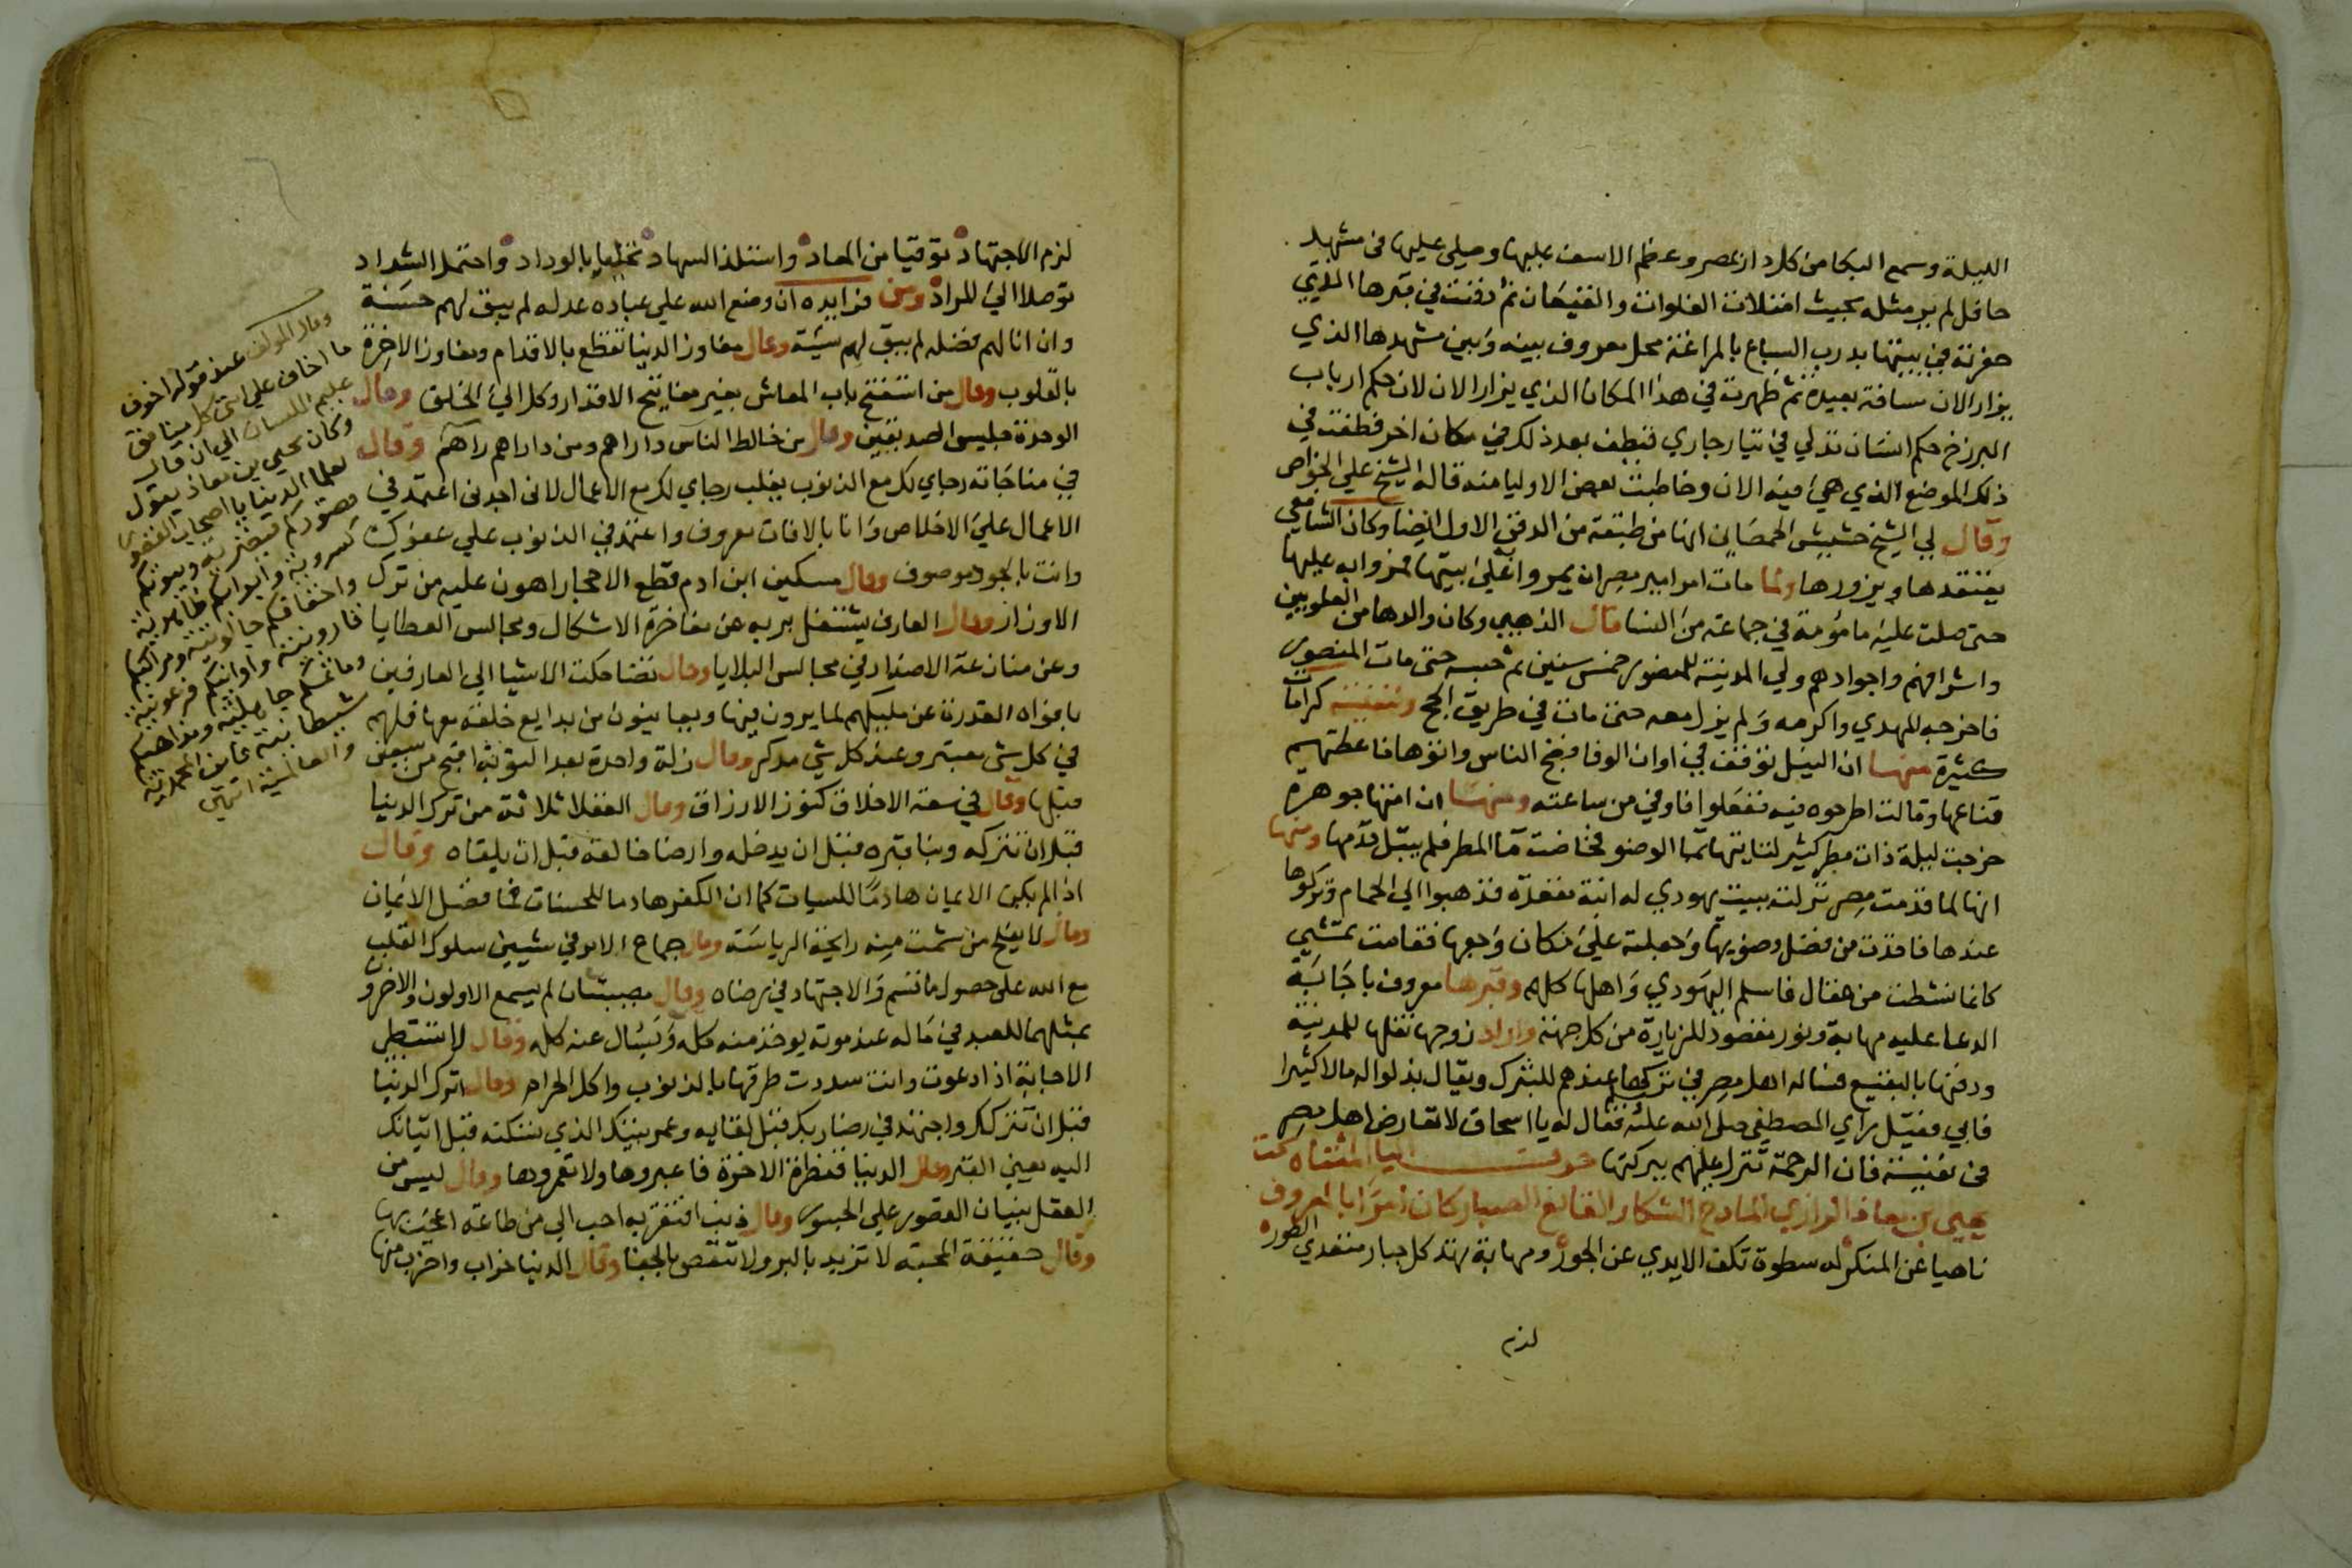 الليلة وسمع البكا من كل دار بمصر وعظم الاسف عليها وصلى عليها فى مشهد
حافل لم ير مثله بحيث امتلات الفلوات والقيعان ثم دفنت في قبرها الذي
حفرته في بيتها بدرب السباع بالمراغة محل معروف بينه وبين مشهدها الذي
يزار الان مسافة بعيدة ثم ظهرت في هذا المكان الذي يزار الان لان حكم ارباب
البرزخ حكم انسان تدلي في تيار جاري فنطف بعد ذلك في مكان اخر فطفت في
ذلك الموضع الذي هي فيه الان وخاطبت بعض الاوليا منه قاله الشيخ علي الخواص
وقال لي الشيخ حشيش الحمصاني انها من طبقته من الدفن الاول ايضا وكان الشافعي
يعتقدها ويزورها ولما مات امر امير مصر ان يمروا على بيتها فمروا به عليها
حتى صلت عليه مامؤمة في جماعة من النسا قال الذهبي وكان والدها من العلويين
واشرافهم واجوادهم ولي المدينة للمنصور خمس سنين ثم حبسه حتى مات المنصور
فاخرجه المهدي واكرمه ولم يزل معه حتى مات في طريق الحج ولنفيسة كرامات
كثيرة منها ان النيل توقف في اوان الوفا فضج الناس واتوها فاعطتهم
قناعها وقالت اطرحوه فيه ففعلوا فاوفي من ساعته ومنها ان امتها جوهرة
خرجت ليلة ذات مطر كثير لتاتيها بما الوضو فخاضت ما المطر فلم يبتل قدمها ومنها
انها لما قدمت مصر نزلت ببيت يهودي له ابنة مقعدة فذهبوا الي الحمام وتركوها
عندها فاخذت من فضل وضويها وجعلته علي مكان وجعها فقامت تمشي
كانما نشطت من عقال فاسلم اليهودي واهلها كلهم وقبرها معروف باجابة
الدعا عليه مهابة ونور مقصود للزيارة من كل جهة واراد زوجها نقلها للمدينة
ودفنها بالبقيع فساله اهل مصر في تركها عندهم للتبرك ويقال بذلوا له مالا كثيرا
فابي فقيل راي المصطفي صلى الله عليه وسلم فقال له يا اسحاق لا تعارض اهل مصر
في نفيسة فان الرحمة تنزل عليهم ببركتها حرف اليا المثناة تحت
يحيى بن معاذ الرازي المادح الشكار القانع الصبار كان امرا بالمعروف
ناهيا عن المنكر له سطوة تكف الايدي عن الجور ومهابة تهد كل جبار متعدي الطوره
لزم
لزم الاجتهاد توقيا من المعاد واستلذ السهاد تخليا بالوداد واحتمل الشداد
توصلا الي المراد ومن فوايده ان وضع الله علي عباده عدله لم يبق لهم حسنة
وان انالهم فضله لم يبق لهم سيئة وقال مفاوز الدنيا تقطع بالاقدام ومفاوز الاخرة
بالقلوب وقال من استفتح باب المعاش بغير مفاتيح الاقدار وكل الي الخلق وقال
الوحدة جليس الصديقين وقال من خالط الناس داراهم ومن داراهم راآهم وقال
في مناجاته رجاي لك مع الذنوب يغلب رجاي لك مع الاعمال لانى اجدنى اعتمد في
الاعمال علي الاخلاص وانا بالافات معروف واعتمد في الذنوب علي عفوك
وانت بالجود موصوف وقال مسكين ابن ادم قطع الاحجار اهون عليه من ترك
الاوزار وقال العارف يشتغل بربه عن مفاخرة الاشكال ومجالس العطايا
وعن منازعة الاضداد في مجالس البلايا وقال تضاحكت الاشيا الي العارفين
بافواه القدرة عن مليكهم لما يرون فيها ويعاينون من بدايع خلقه معها فلهم
في كل شي معتبر وعند كل شي مدكر وقال زلة واحدة بعد التوبة اقبح من سبعين
قبلها وقال في سعة الاخلاق كنوز الارزاق وقال العقلا ثلاثة من ترك الدنيا
قبل ان تتركه وبنا قبره قبل ان يدخله وارضا خالقه قبل ان يلقاه وقال
اذا لم يكن الايمان هادما للسيات كما ان الكفر هادما للحسنات فما فضل الايمان
وقال لا يفلح من شمت منه رايحة الرياسة وقال جماع الامر في شيين سلوك القلب
مع الله على حصول ما قسم والاجتهاد في رضاه وقال مصيبتان لم يسمع الاولون والاخرون
بمثلهما للعبد في ماله عند موته يوخذ منه كله ويسال عنه كله وقال لا تستبطي
الاجابة اذا دعوت وانت سددت طرقها بالذنوب واكل الحرام وقال اترك الدنيا
قبل ان تتركك واجتهد في رضا ربك قبل لقايه وعمر بيتك الذي تسكنه قبل اتيانك
اليه يعني القبر وقال الدنيا قنطرة الاخرة فاعبروها ولا تعمروها وقال ليس من
العقل بنيان القصور علي الجسور وقال ذنب افتقر به احب الي من طاعة اعجب بها
وقال حقيقة المحبة لا تزيد بالبر ولا تنقص بالجفا وقال الدنيا خراب واخرب منها
وقال المولف عند قوله اخوف
ما اخاف علي امتي كل منافق
عليم اللسان الي ان قال
وكان يحيى بن معاذ يقول
لعلما الدنيا يا اصحاب القصور
قصوركم قيصرية وبيوتكم
كسروية وابوابكم ظاهرية
واخفافكم جالوتية ومراكبكم
قارونية واوانيكم فرعونية
وماثمكم جاهلية ومذاهبكم
شيطانية فاين المحمدية
والعالمية انتهى